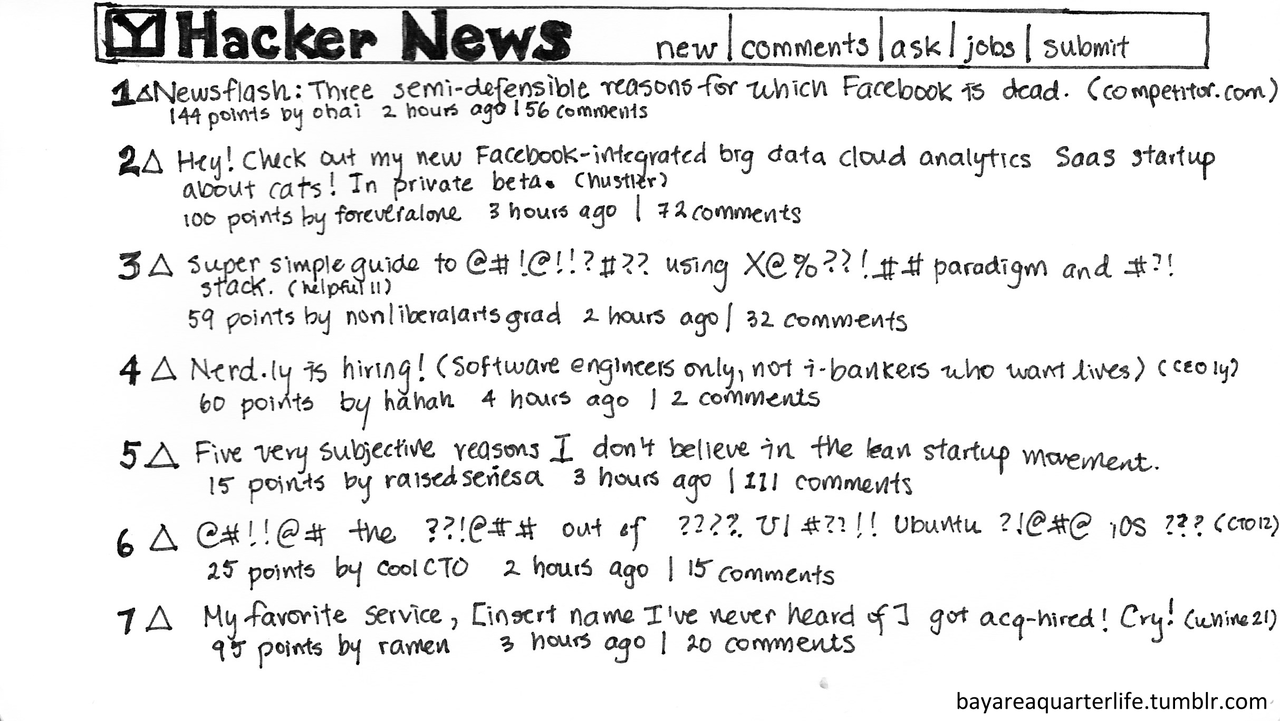 Y Hacker News new | comments | ask | jobs | submit
1△Newsflash: Three semi-defensible reasons for which Facebook is dead. (competitor.com)
144 points by ohai 2 hours ago | 56 comments
2△ Hey! Check out my new Facebook-integrated big data cloud analytics SaaS startup
about cats! In private beta. (hustler)
100 points by foreveralone 3 hours ago | 72 comments
3△ Super simple guide to @#!@!!?#?? using X@%??!## paradigm and #?!
stack. (helpful11)
59 points by nonliberalartsgrad 2 hours ago | 32 comments
4△ Nerd.ly is hiring! (Software engineers only, not i-bankers who want lives) (CEO1y)
60 points by hahah 4 hours ago | 2 comments
5△ Five very subjective reasons I don't believe in the lean startup movement.
15 points by raisedseriesa 3 hours ago | 111 comments
6△ @#!!@# the ??!@## out of ????. UI #??!! Ubuntu ?!@#@ iOS ??? (CTO12)
25 points by coolCTO 2 hours ago | 15 comments
7△ My favorite service, [insert name I've never heard of] got acq-hired! Cry! (whine21)
95 points by ramen 3 hours ago | 20 comments
bayareaquarterlife.tumblr.com